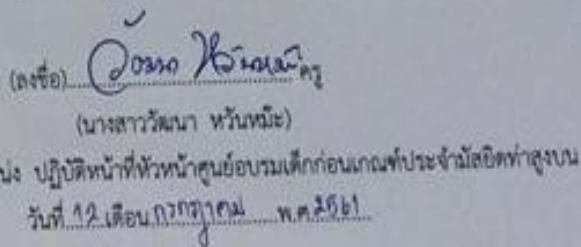 (ลงชื่อ) วัฒนา หวันหม๊ะ ครู
(นางสาววัฒนา หวันหม๊ะ)
ปฏิบัติหน้าที่หัวหน้าศูนย์อบรมเด็กก่อนเกณฑ์ประจำมัสยิดท่าสูงบน
วันที่ 12 เดือน กรกฎาคม พ.ศ. 2561